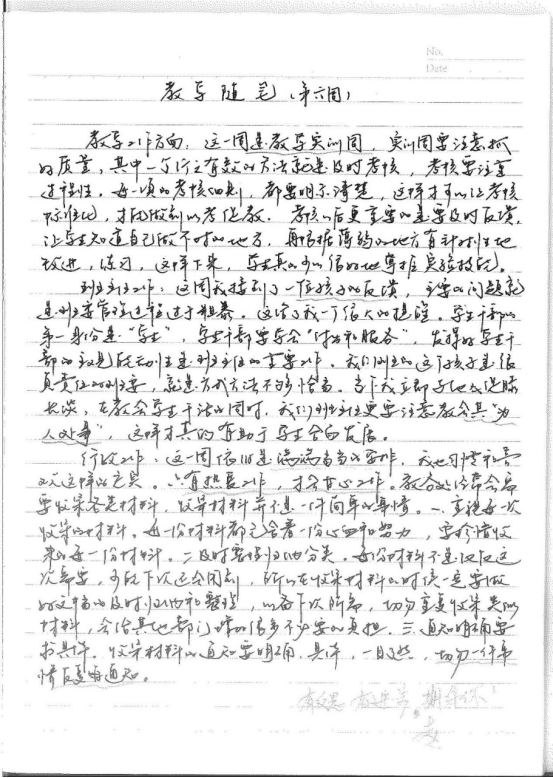 No.
Date
教导随笔(第六周)
教导工作方面:这一周是教学实训周,实训周要注意抓
的质量,其中一个行之有效的方法就是及时考核,考核要注重
过程性。每一项的考核细则,都要明示清楚,这样才可以让考核
标准化,才能做到以考促教。考核以后更重要的是要及时反馈,
让学生知道自己做不对的地方,再根据薄弱的地方有针对性地
改进,练习,这样下来,学生真的可以很好地掌握实验技能。
班主任工作:这周我接到了一位孩子的反馈,主要的问题就
是班委管理过程过于粗暴。这给了我一个很大的提醒。学生干部的
第一身份是“学生”,学生干部要学会“付出和服务”,发挥好学生干
部的主观能动性是班主任的重要工作。我们班的这个孩子是很
负责任的班委,就是方式方法不够恰当。当下我立即与他促膝
长谈,在教会学生干活的同时,我们班主任更要注意教会其“为
人处事”,这样才真的有助于学生全面发展。
行政工作:这一周依旧是满满当当的工作,我也习惯和喜
欢这样的充实。有热爱工作,才会甘心工作。教务处经常会需
要收集各类材料,收集材料并不是一件简单的事情。一、重视每一次
收集的材料。每一份材料都包含着一份心血和努力,要珍惜收
来的每一份材料。二、及时整理归纳分类。每份材料不是仅仅这
次需要,可能下次还会用到,所以在收集材料的时候一定要做
好文档的及时归纳和整理,以备下次所需,切勿重复收集类似
材料,会给其他部门增加很多不必要的负担。三、通知明确要
求具体。收集材料的通知要明确、具体,一目了然,切勿一件事
情反复的通知。